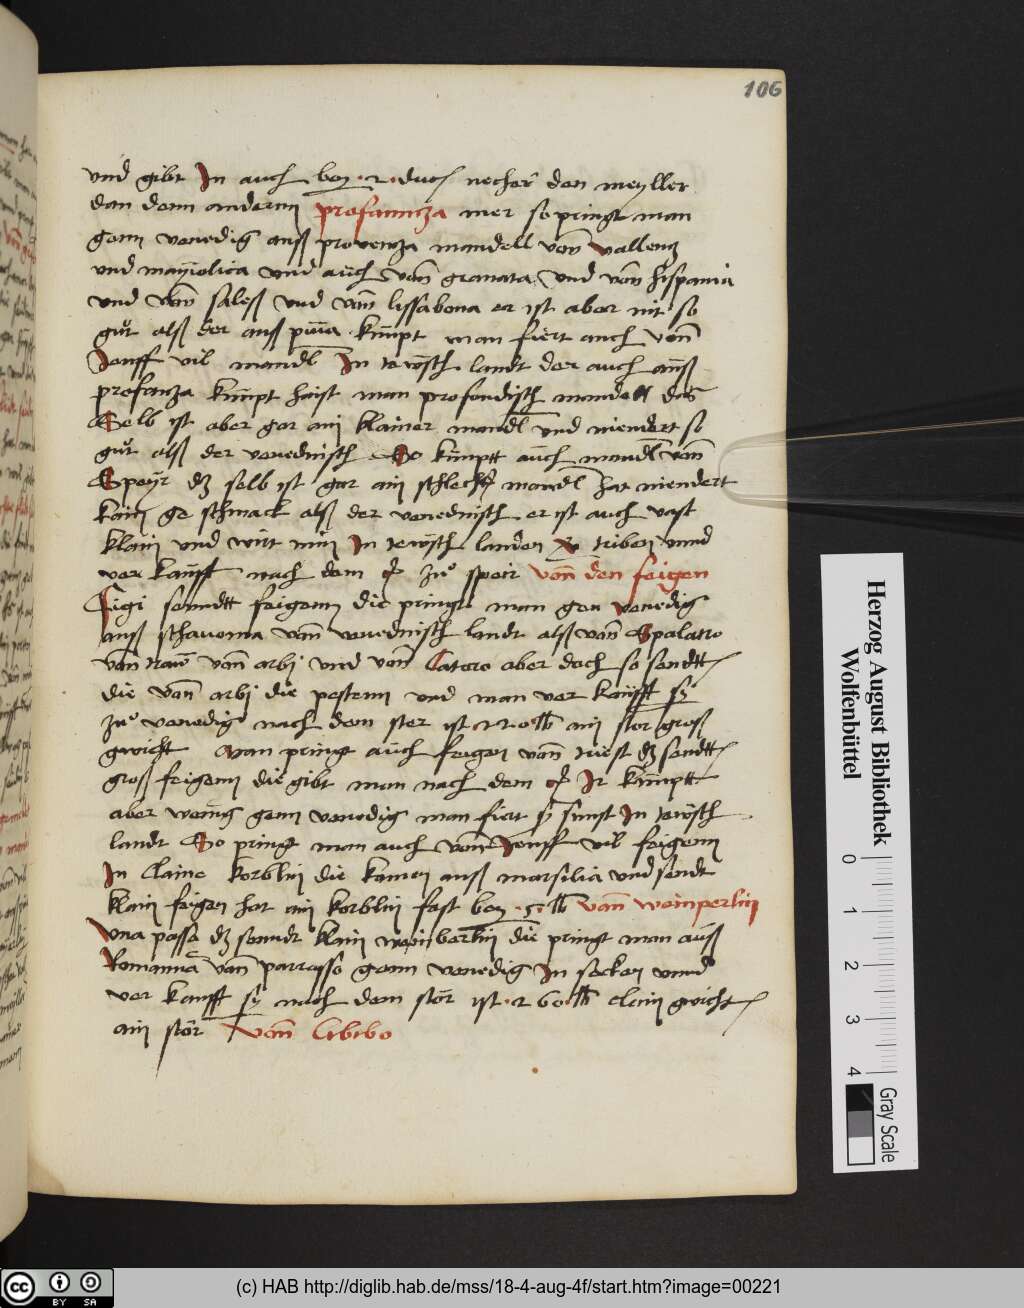 106
und gibt In auch bey ·2· duc necher den meyller
dan denn anderm prefanntza mer so pringt man
genn venedig auß provenza mandell von vallenz
und mayiolica und auch von granata und von hispania
und von saleß und von lissabona er ist aber nit so
gut alß der auß kumpt man fiert auch von
Jenff vil mandl In tewsch landt der auch auß
prefanza kumpt haist man profandisch mandell das
Selb ist aber gar ain klainer mandl und niendert so
gut alß der venedisch So kumptt auch mandl von
Speyr dz selb ist gar ain schlecht mandl hat niendert
kain ge schmack alß der venedisch er ist auch vast
klain und wirt nun In tewsch landen triben unnd
ver kaufft nach dem zu speir von den feigen
Figi senndtt feigenn die pringt man gen venedig
auß schavonia von venedisch landt alß von Spalatro
von traw von arbi und von Catero aber doch so sendtt
die von arbi die pestenn und man ver kaufft sy
zu venedig nach dem ster ist lb ain ster groß
gwicht Man pringt auch feigen von triest dz sendtt
groß feigenn die gibt man nach dem Ir kumptt
aber wenig genn venedig man fiert sy sunst In tewsch
landt So pringt man auch von Jenff vil feigenn
In claine korblin die komen auß marsilia und sendt
klain feigen hat ain korblin fast bey ·5· lb von weinperlin
Una passa dz senndt klain wein berlin die pringt man auß
Romannia von parrasso genn venedig In secken unnd
ver kaufft sy nach dem stör ist ·260· lb clain gwicht
ain stör von Libibo
Herzog August Bibliothek
Wolfenbüttel
0 1 2 3 4
Gray Scale
cc BY SA
(c) HAB http://diglib.hab.de/mss/18-4-aug-4f/start.htm?image=00221